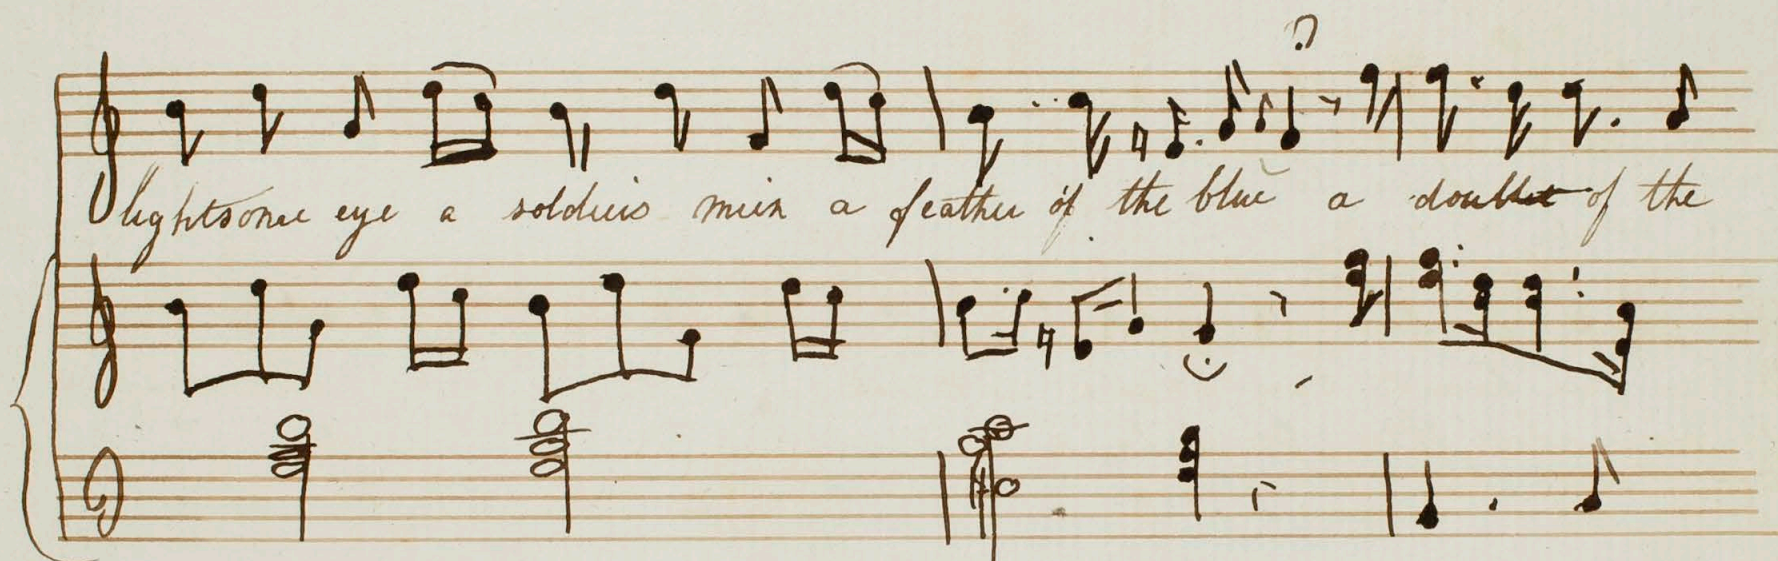 lightsome eye a soldiers mien a feather of the blue a doublet of the